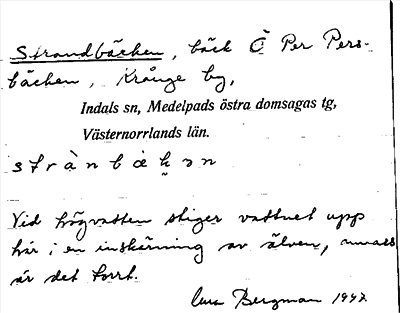 Strandbäcken, bäck Ö Per Pers-
bäcken, Krånge by,
Indals sn, Medelpads östra domsagas tg,
Västernorrlands län.
strànbäkən
Vid högvatten stiger vattnet upp
här i en inskärning av älven, annars
är det torrt.
Bergman 1947.